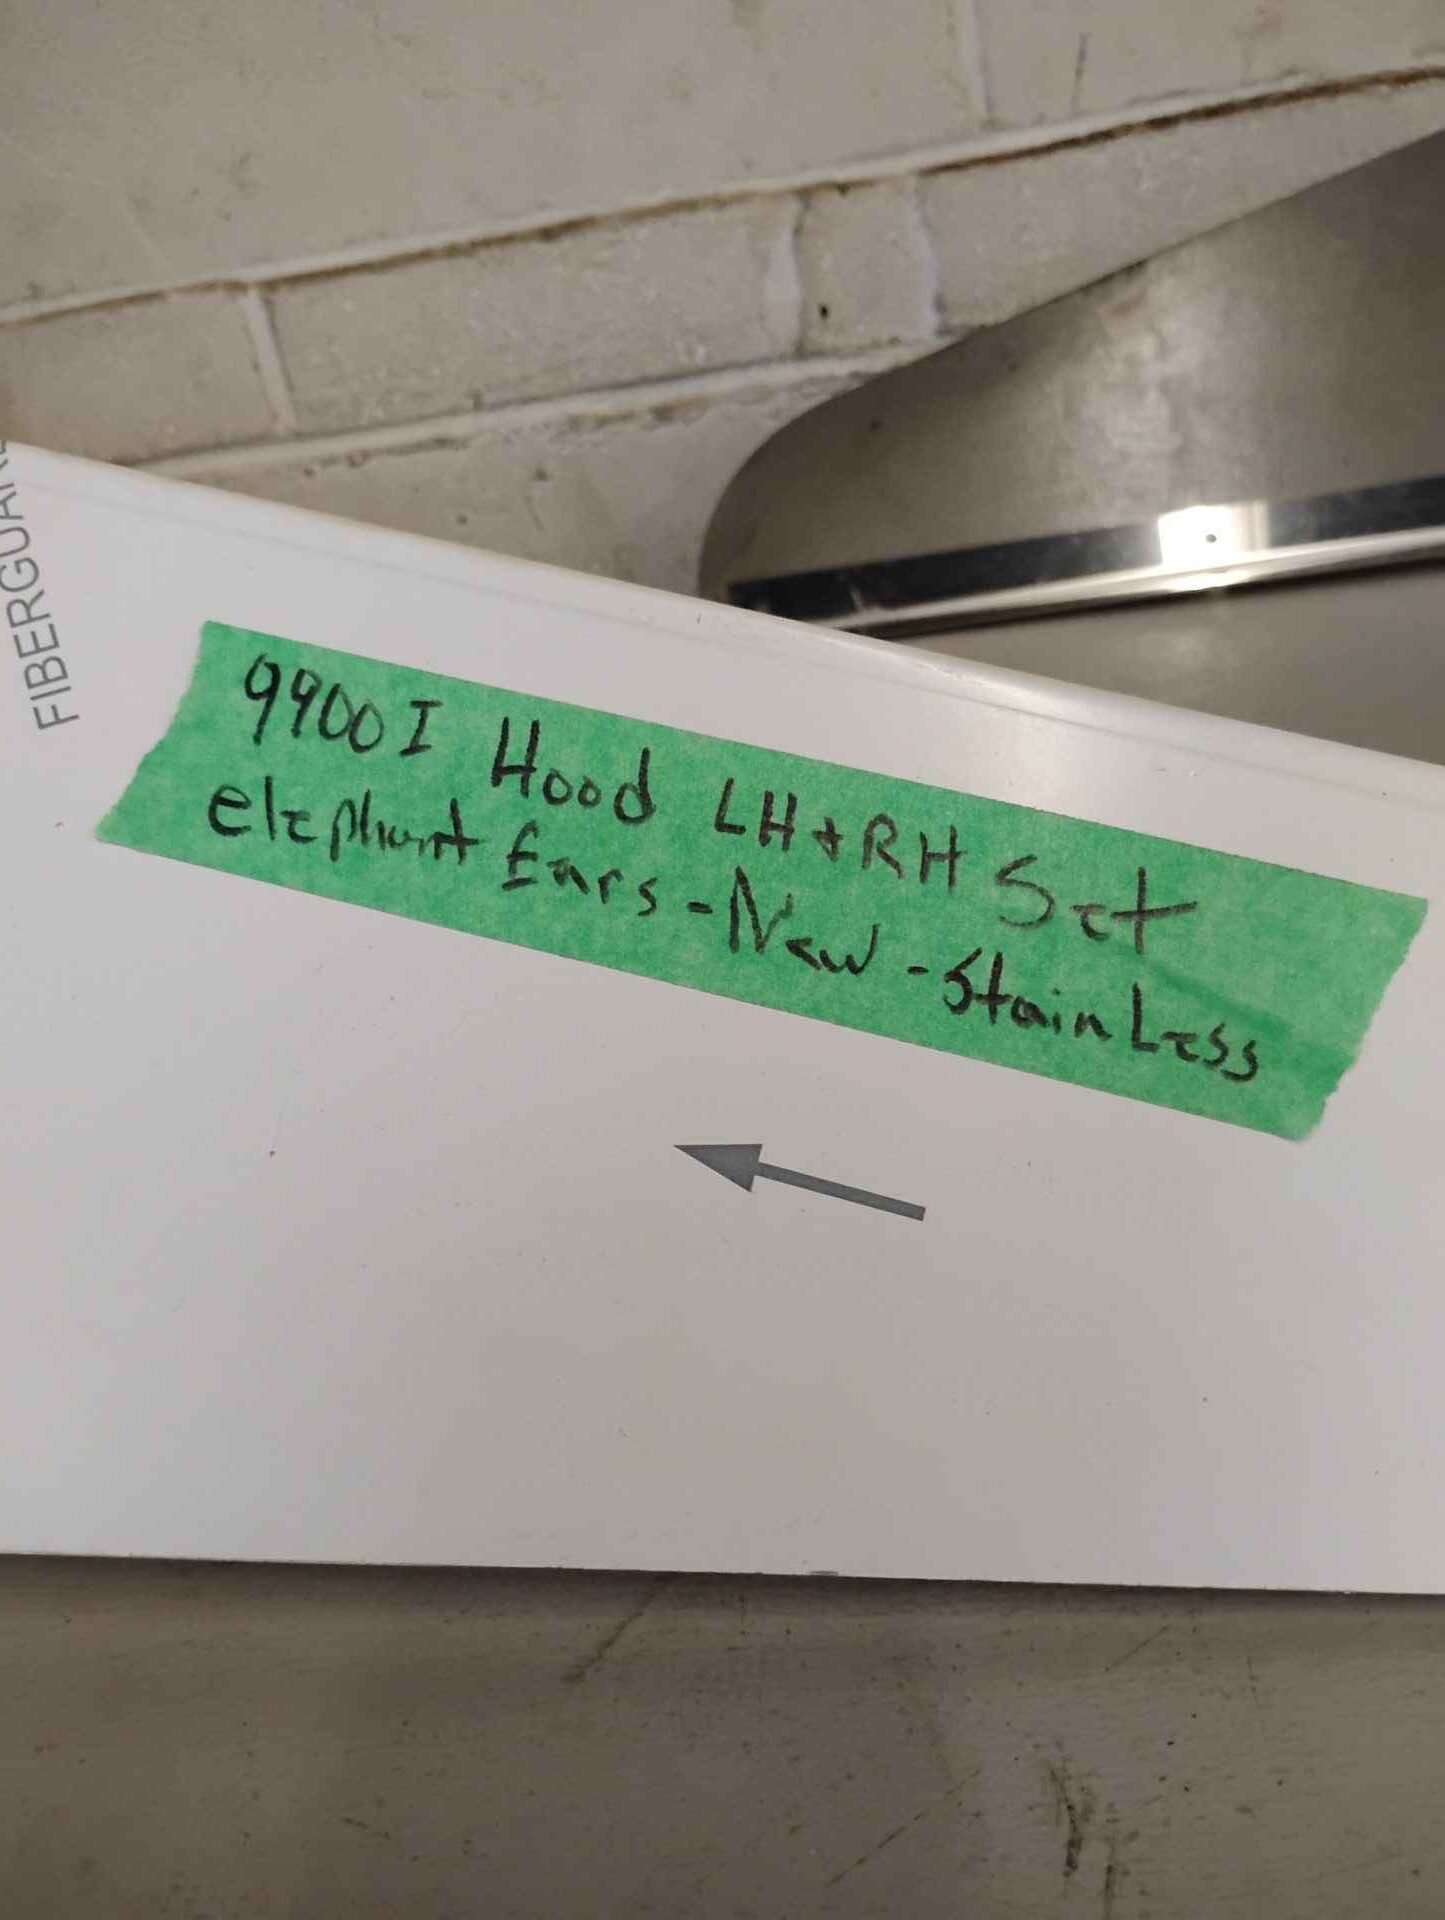 FIBERGUARD
9900I Hood LH+RH Set
elephant Ears - New - StainLess